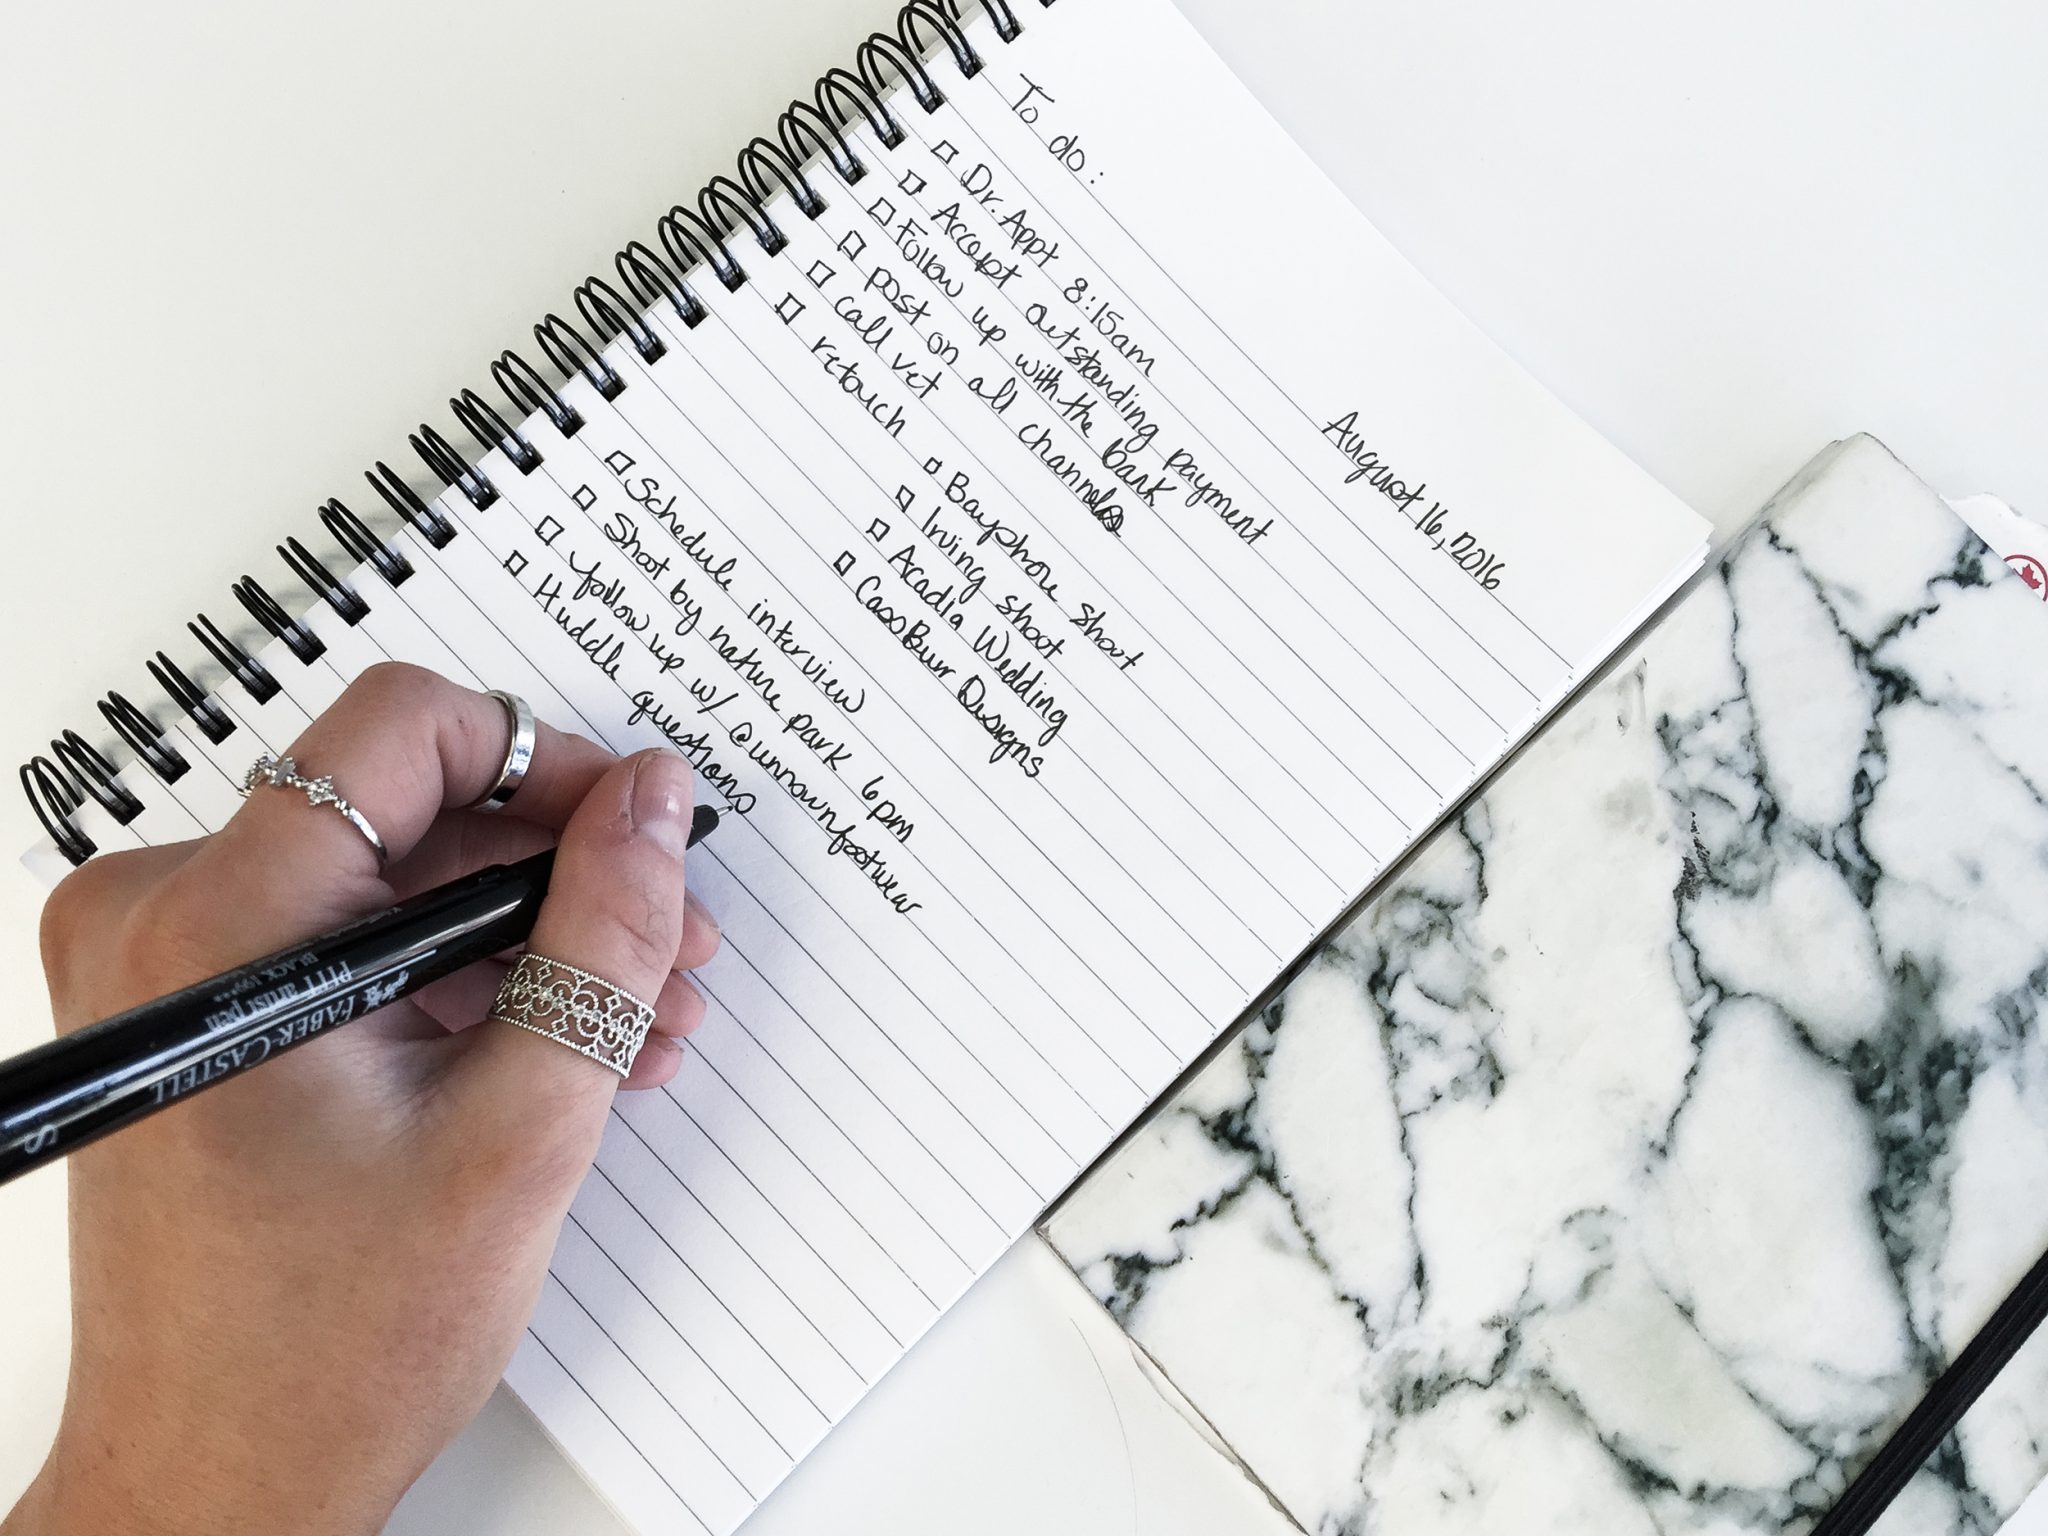 August 16, 2016
To do:
Dr. Appt 8:15am
Accept outstanding payment
Follow up with the bank
post on all channels
call vet
retouch
Bayphone shoot
Irving shoot
Acadia Wedding
CasoBurr Designs
Schedule interview
Shoot by nature park 6pm
follow up w/ @unnownfootwear
Huddle questions
FABER-CASTELL
PITT artist pen
BLACK 199**
S